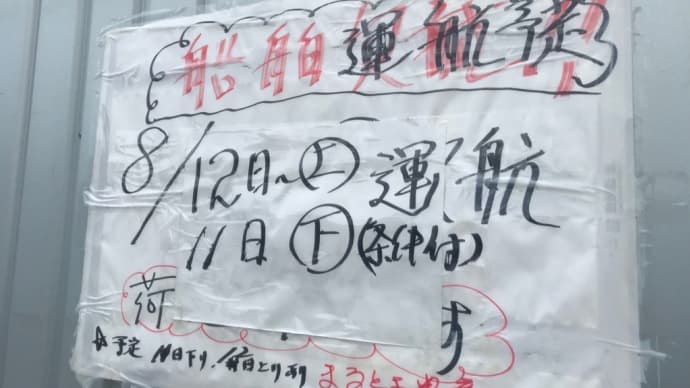 船舶運航予定
8/12日〜㊤運航
11日㊦(条件付)
荷 す
☆予定 11日下り、